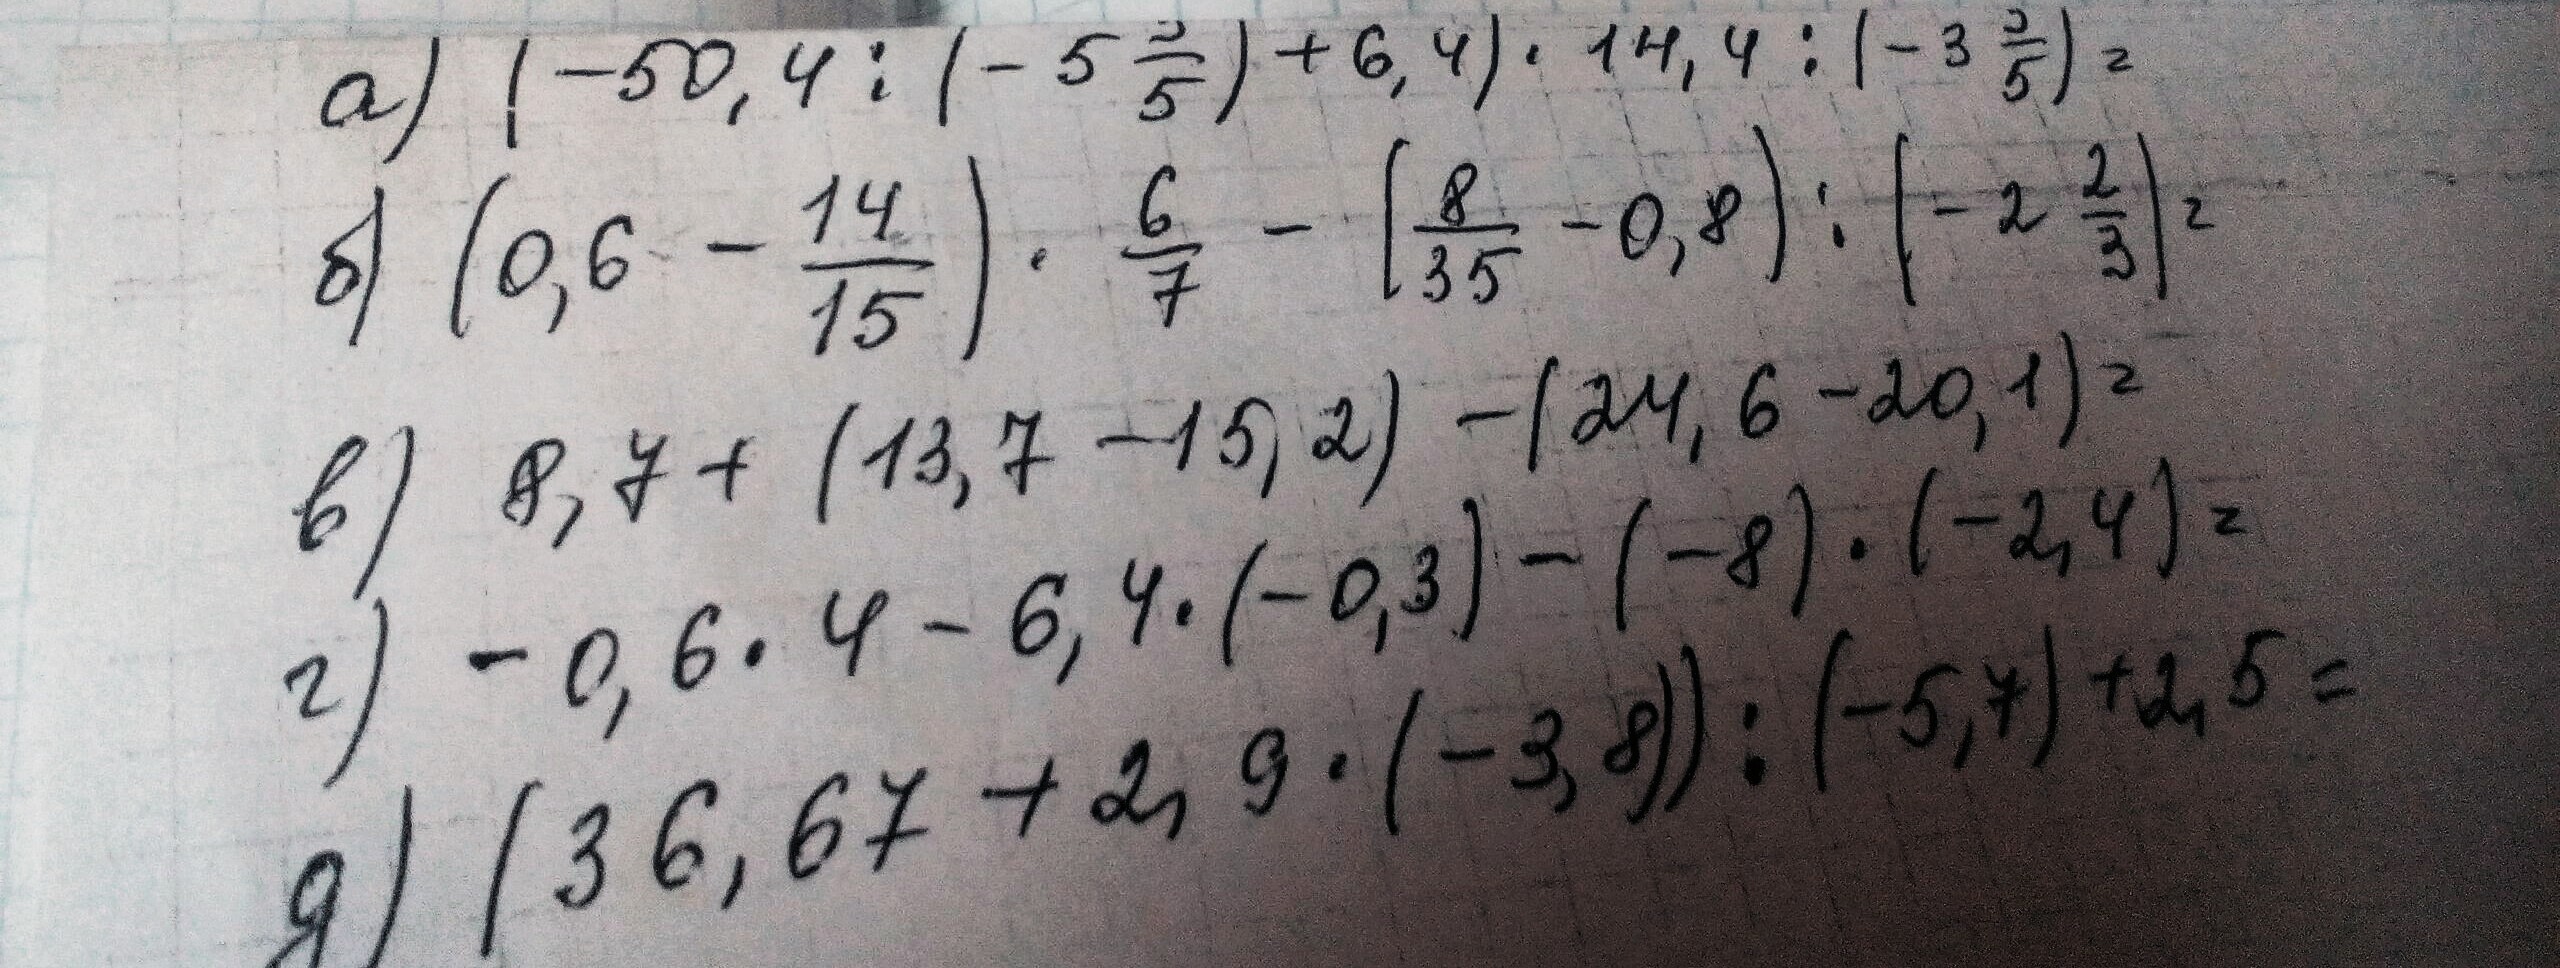 а) (-50,4 : (-5 3/5) + 6,4) · 14,4 : (-3 3/5) =
б) (0,6 - 14/15) · 6/7 - (8/35 - 0,8) : (-2 2/3) =
в) 8,7 + (13,7 - 15,2) - (24,6 - 20,1) =
г) -0,6 · 4 - 6,4 · (-0,3) - (-8) · (-2,4) =
д) (36,67 + 2,9 · (-3,8)) : (-5,7) + 2,5 =